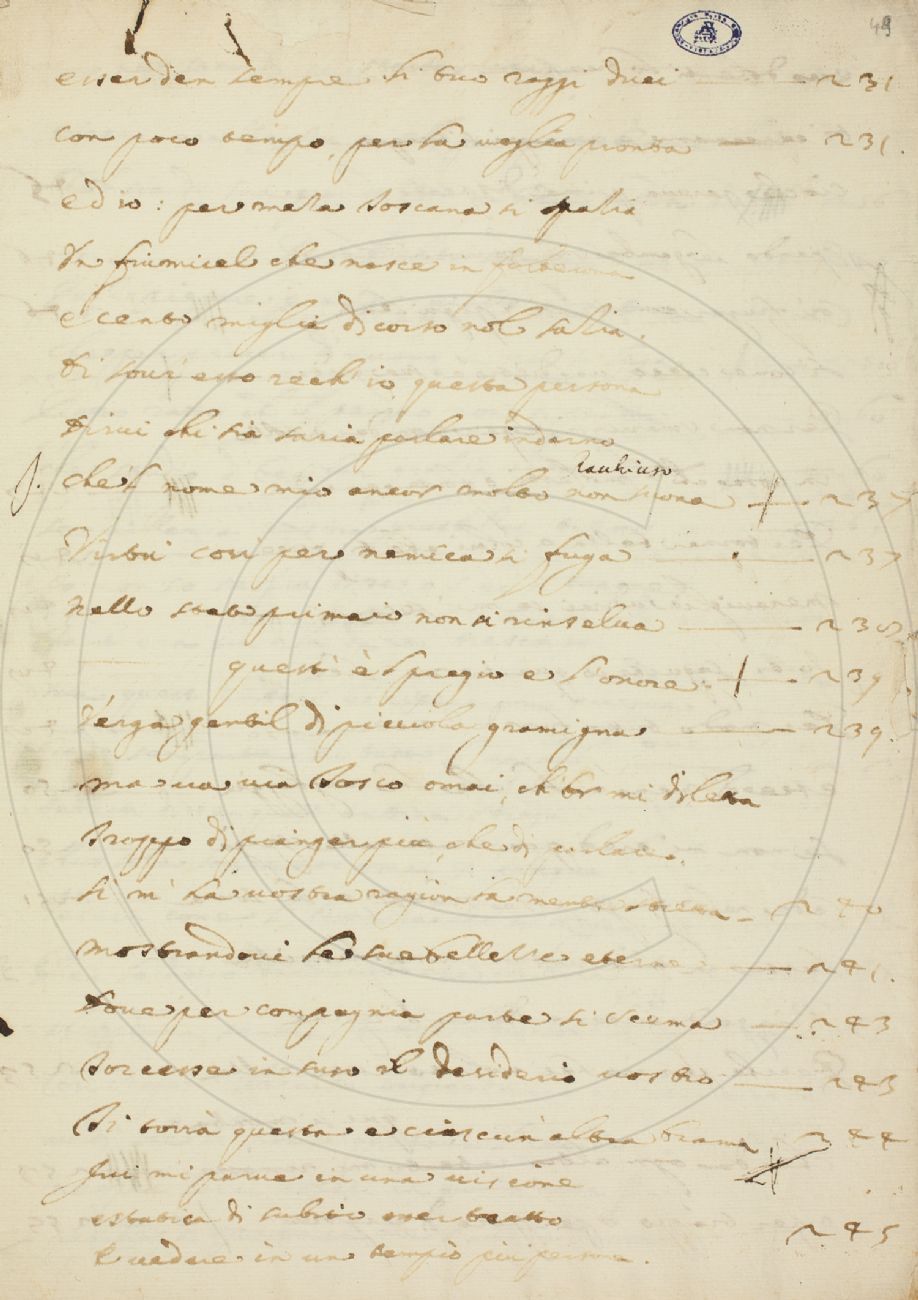 49
esser den sempre li tuo raggi duci 231
con poco tempo, per la voglia pronta 231.
ed io: per meza Toscana si spatia
Un fiumicel che nasce in falterona
e cento miglia di corso nol satia.
Di sour' esso rech' io questa persona
Dirui chi sia saria parlare indarno
che 'l nome mio ancor molto non suona 237
Virtù così per nemica si fuga 237
Nello stato primaio non si rinselua 238
questi è 'l pregio e l'onore. 239
Verga gentil di picciola gramigna 239.
ma va via Tosco omai, ch'or mi diletta
Troppo di pianger più, che di parlare,
si m' ha vostra ragion la mente stretta 240
mostrandoui le sue bellezze eterne 241.
Doue per compagnia parte si scema 243
Torcesse in suso il desiderio vostro 243
Ti torrà questa e ciascun' altra brama 244
Iui mi parue in una visione
estatica di subito esser tratto 245
E vedere in un tempio più persone.